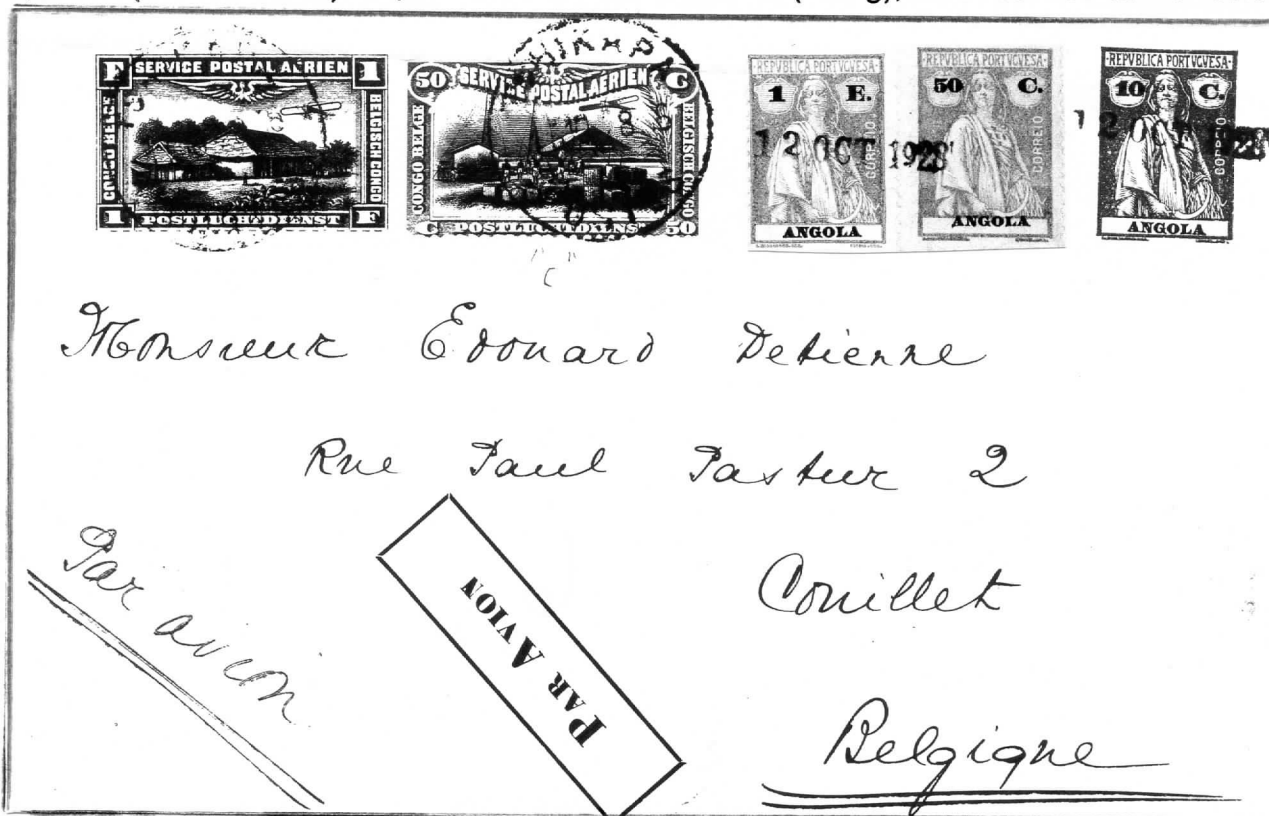 F SERVICE POSTAL AÉRIEN 1
CONGO BELGE
BELGISCH CONGO
1 POSTLUCHTDIENST F
50 SERVICE POSTAL AÉRIEN C
CONGO BELGE
BELGISCH CONGO
C POSTLUCHTDIENST 50
REPVBLICA PORTVGVESA
1 E.
CORREIO
ANGOLA
REPVBLICA PORTVGVESA
50 C.
CORREIO
ANGOLA
REPVBLICA PORTVGVESA
10 C.
CORREIO
ANGOLA
12 OCT 1928
Monsieur Edouard Detienne
Rue Paul Pastur 2
Couillet
Belgique
Par avion
PAR AVION